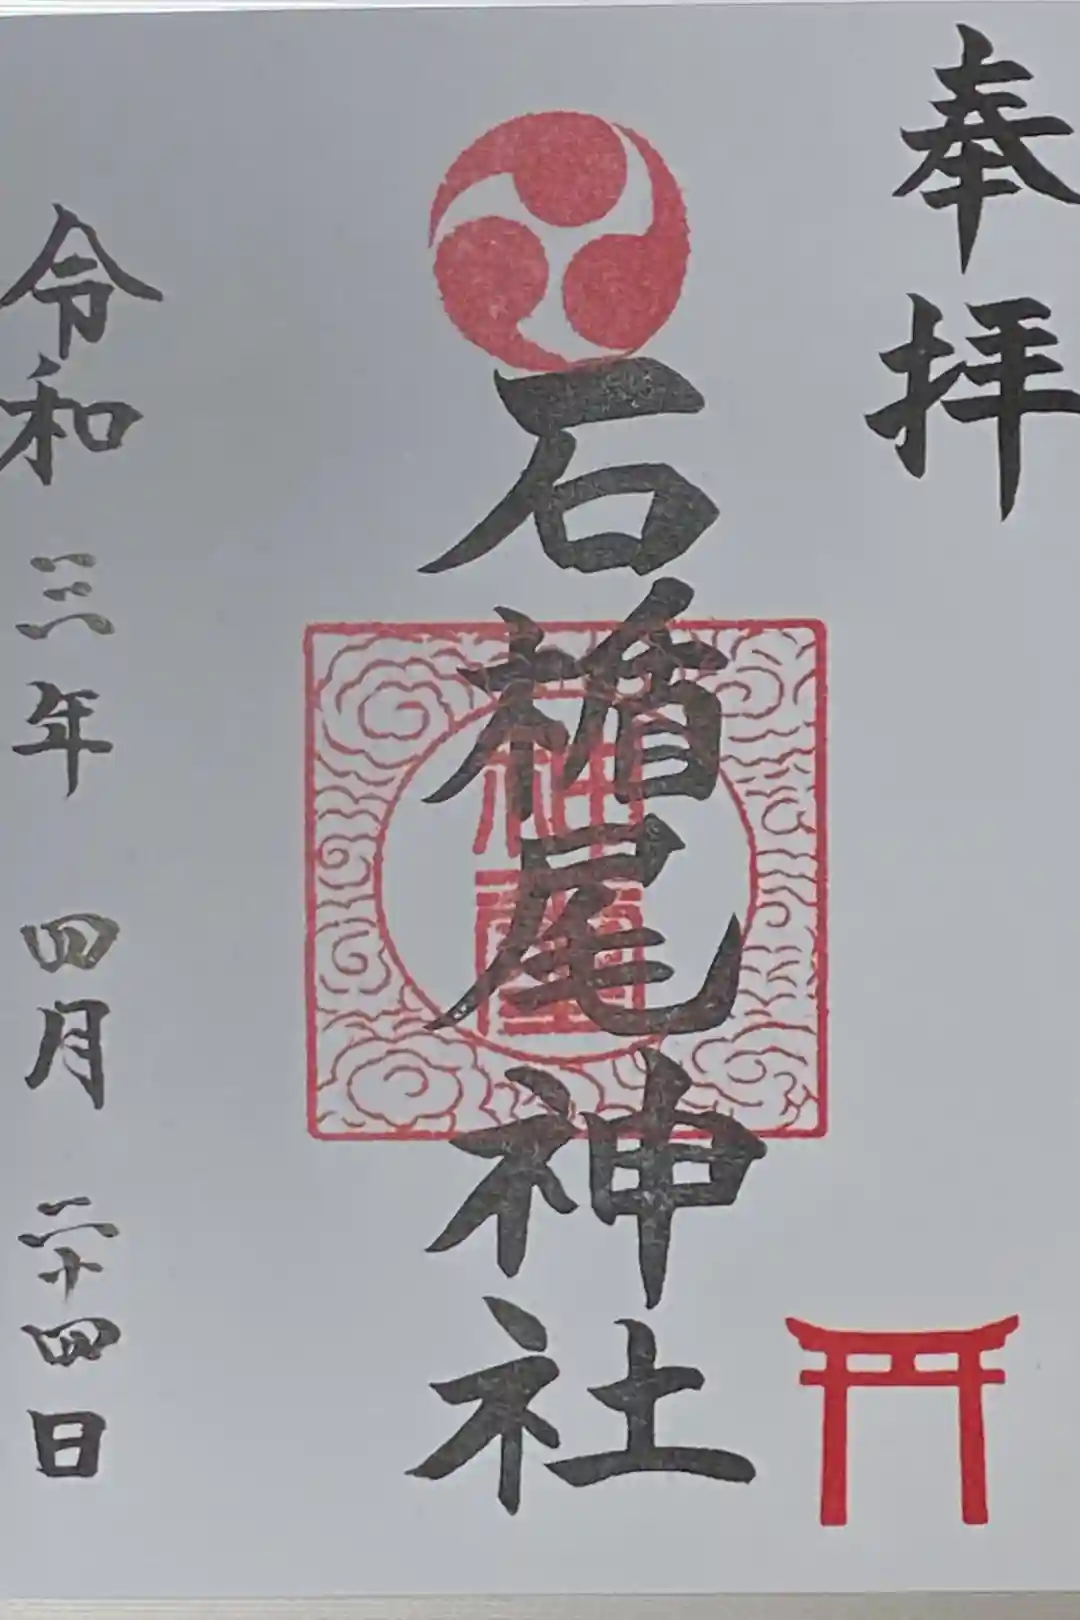 奉拝
石楯尾神社
令和三年 四月 二十四日